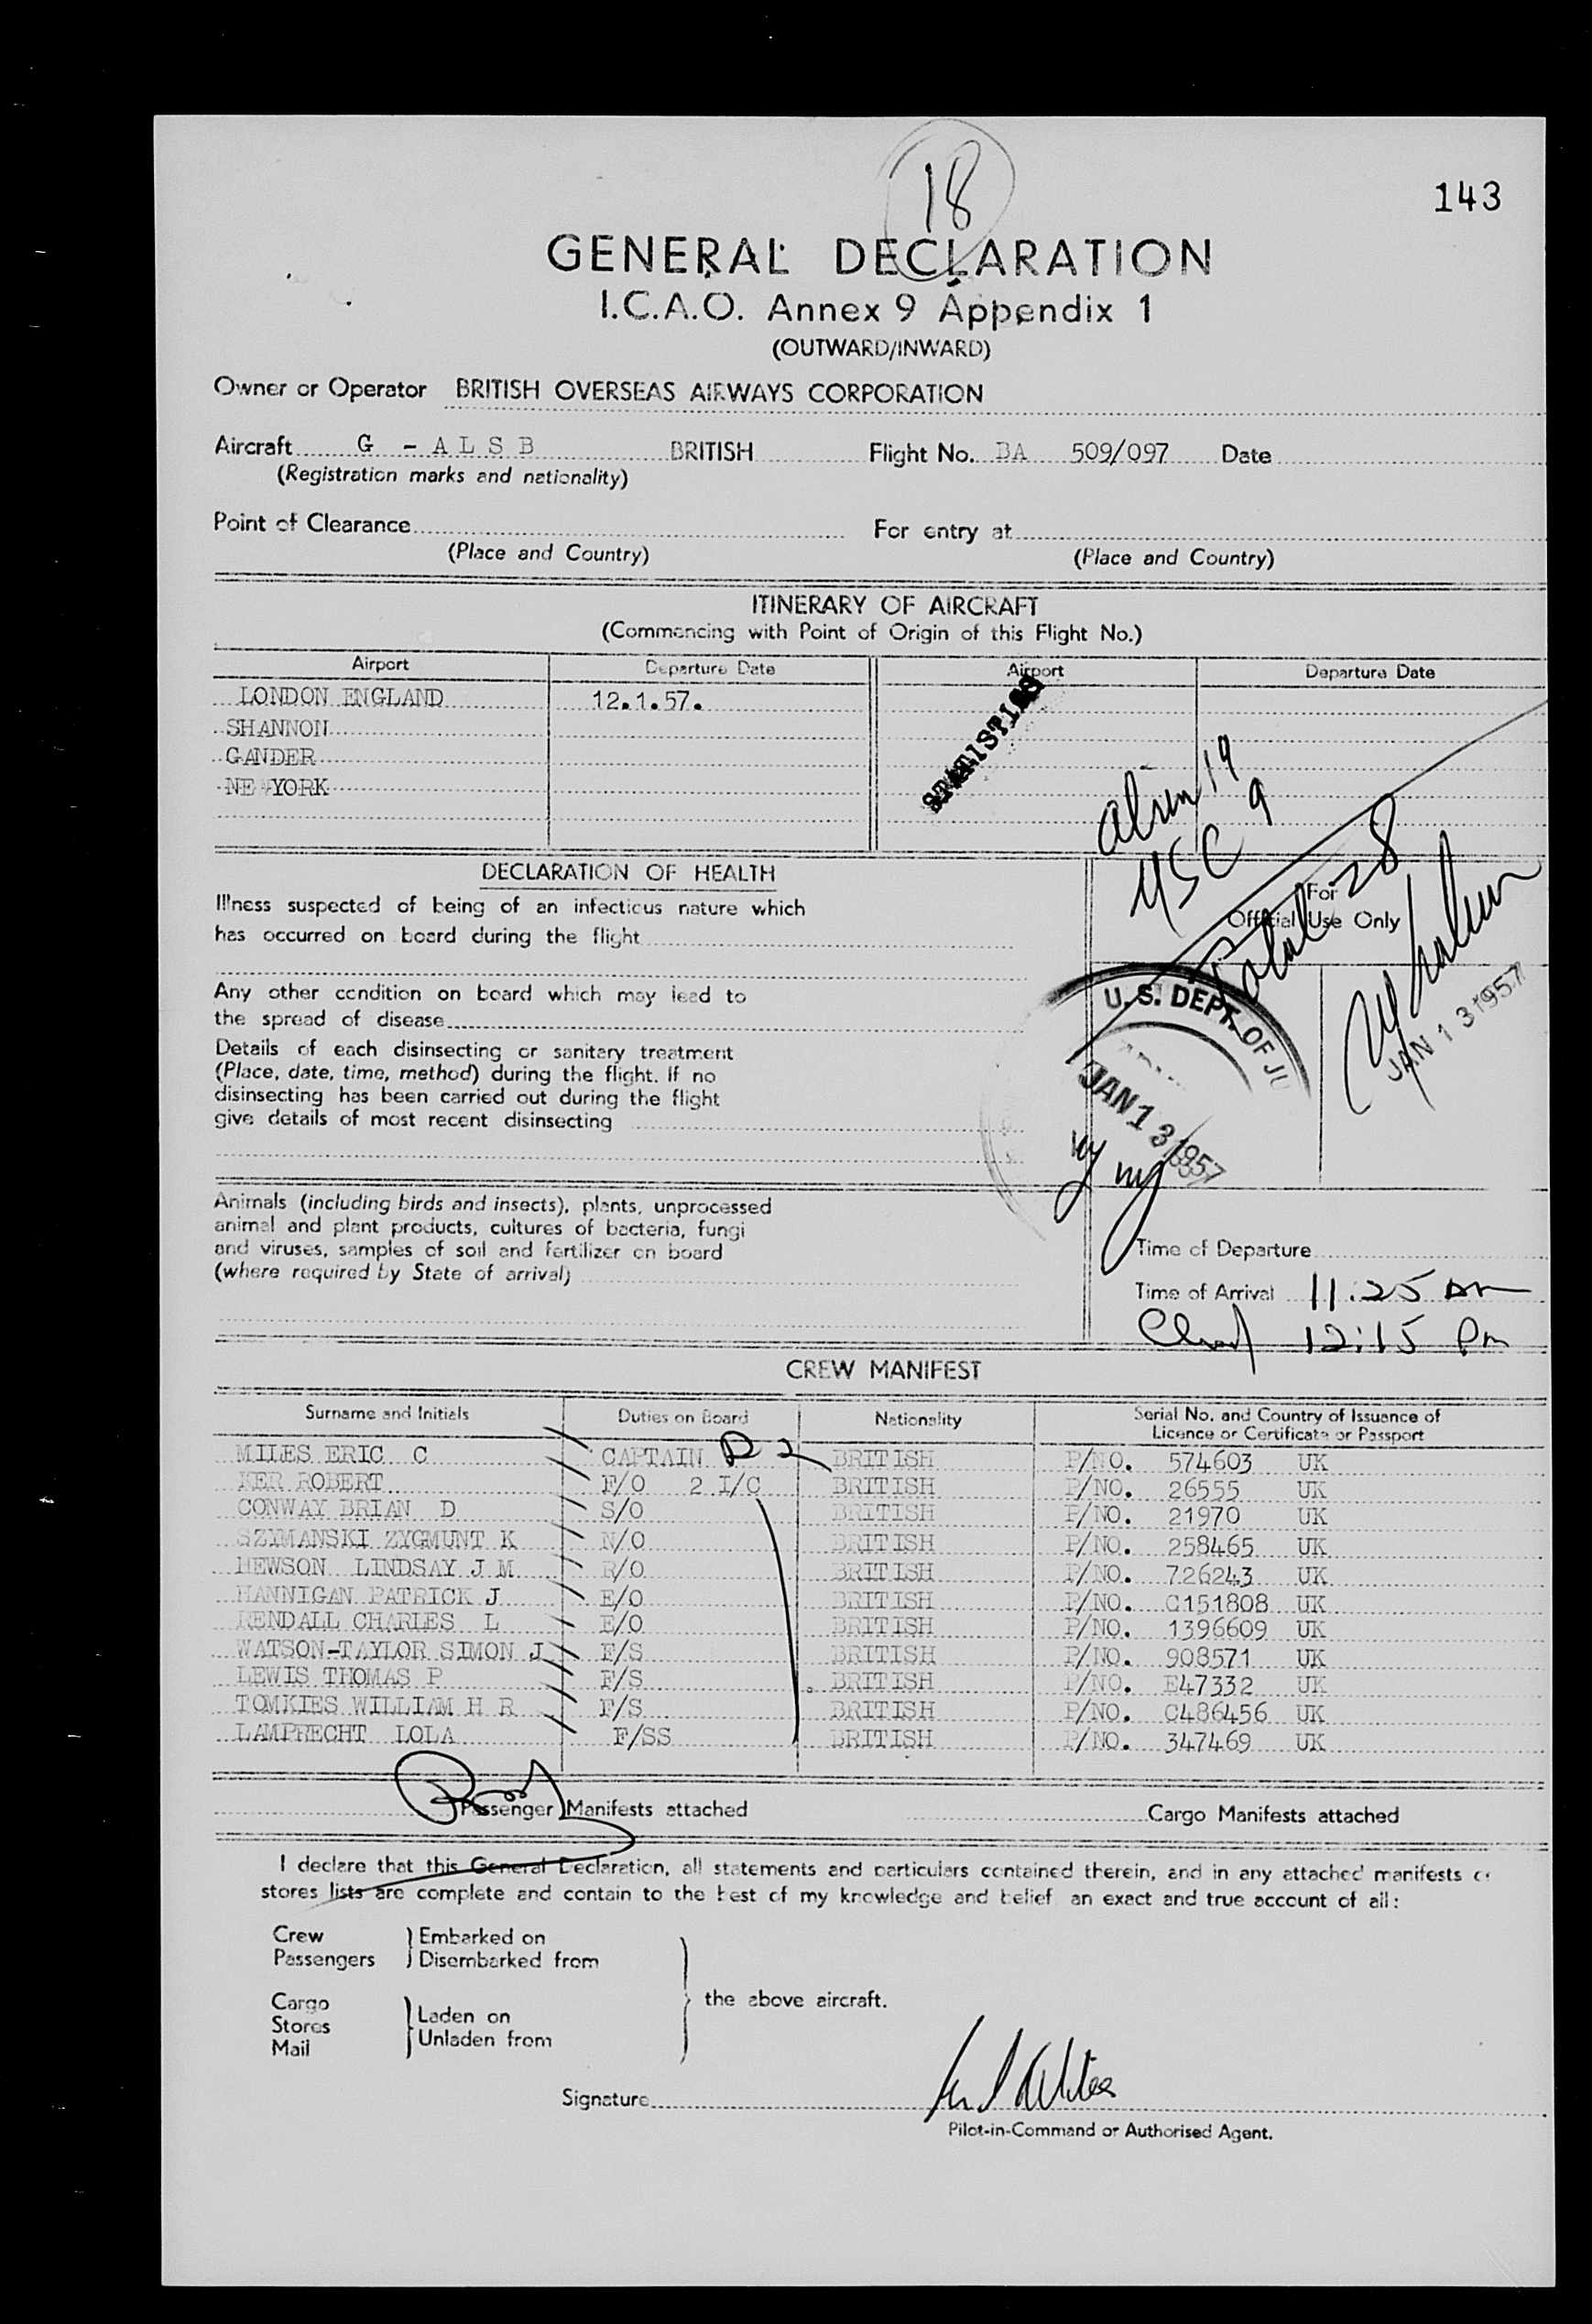 18
143
GENERAL DECLARATION
I.C.A.O. Annex 9 Appendix 1
(OUTWARD/INWARD)
Owner or Operator BRITISH OVERSEAS AIRWAYS CORPORATION
Aircraft G - A L S B BRITISH Flight No. BA 509/097 Date
(Registration marks and nationality)
Point of Clearance For entry at
(Place and Country) (Place and Country)
ITINERARY OF AIRCRAFT
(Commencing with Point of Origin of this Flight No.)
Airport Departure Date Airport Departure Date
LONDON ENGLAND 12.1.57.
SHANNON
GANDER
NEW YORK
STATISTICS
alien 19
USC 9
Total 28
DECLARATION OF HEALTH
Illness suspected of being of an infectious nature which
has occurred on board during the flight
For
Official Use Only
Any other condition on board which may lead to
the spread of disease
U. S. DEPT. OF JU
JAN 13 1957
JAN 13 1957
Details of each disinsecting or sanitary treatment
(Place, date, time, method) during the flight. If no
disinsecting has been carried out during the flight
give details of most recent disinsecting
Animals (including birds and insects), plants, unprocessed
animal and plant products, cultures of bacteria, fungi
and viruses, samples of soil and fertilizer on board
(where required by State of arrival)
Time of Departure
Time of Arrival 11:25 am
12:15 Pm
CREW MANIFEST
Surname and Initials Duties on Board Nationality Serial No. and Country of Issuance of
Licence or Certificate or Passport
MILES ERIC C CAPTAIN D 2 BRITISH P/NO. 574603 UK
KER ROBERT F/O 2 I/C BRITISH P/NO. 26555 UK
CONWAY BRIAN D S/O BRITISH P/NO. 21970 UK
SZYMANSKI ZYGMUNT K N/O BRITISH P/NO. 258465 UK
HEWSON LINDSAY J M R/O BRITISH P/NO. 726243 UK
HANNIGAN PATRICK J E/O BRITISH P/NO. C151808 UK
KENDALL CHARLES L E/O BRITISH P/NO. 1396609 UK
WATSON-TAYLOR SIMON J F/S BRITISH P/NO. 908571 UK
LEWIS THOMAS P F/S BRITISH P/NO. E47332 UK
TOMKIES WILLIAM H R F/S BRITISH P/NO. C486456 UK
LAMPRECHT LOLA F/SS BRITISH P/NO. 347469 UK
Passenger Manifests attached Cargo Manifests attached
I declare that this General Declaration, all statements and particulars contained therein, and in any attached manifests or
stores lists are complete and contain to the best of my knowledge and belief an exact and true account of all:
Crew Embarked on
Passengers Disembarked from
the above aircraft.
Cargo Laden on
Stores Unladen from
Mail
Signature
Pilot-in-Command or Authorised Agent.